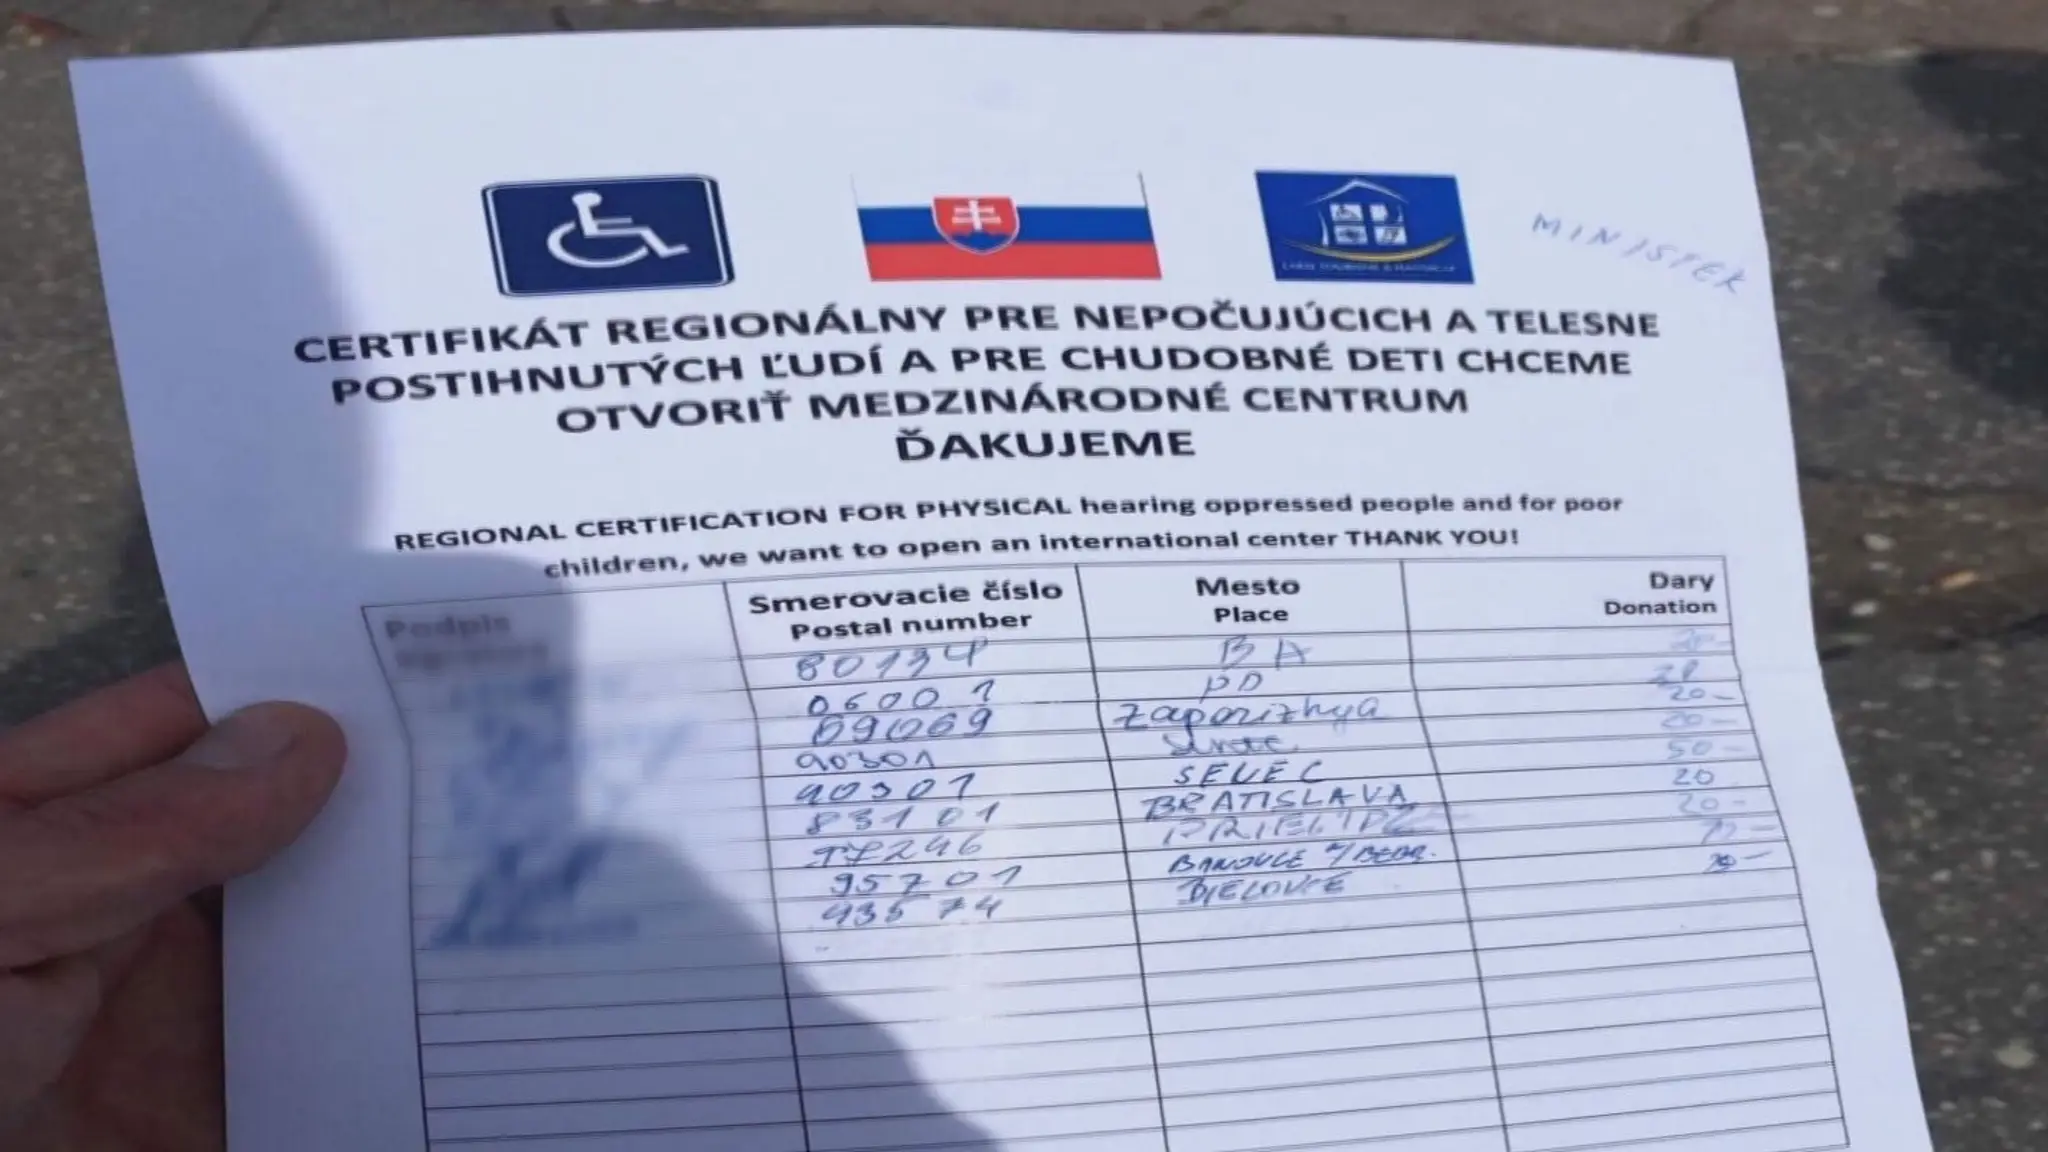 MINISTEK
CERTIFIKÁT REGIONÁLNY PRE NEPOČUJÚCICH A TELESNE
POSTIHNUTÝCH ĽUDÍ A PRE CHUDOBNÉ DETI CHCEME
OTVORIŤ MEDZINÁRODNÉ CENTRUM
ĎAKUJEME
REGIONAL CERTIFICATION FOR PHYSICAL hearing oppressed people and for poor
children, we want to open an international center THANK YOU!
Podpis Smerovacie číslo Mesto Dary
Postal number Place Donation
80134 BA 20-
06001 PD
69069 Zaporizhya 20-
90301 20-
90301 SENEC 50-
83101 BRATISLAVA 20
97246 20-
95701 BANOVCE n/BEBR.
93574 BIELOVCE 20-